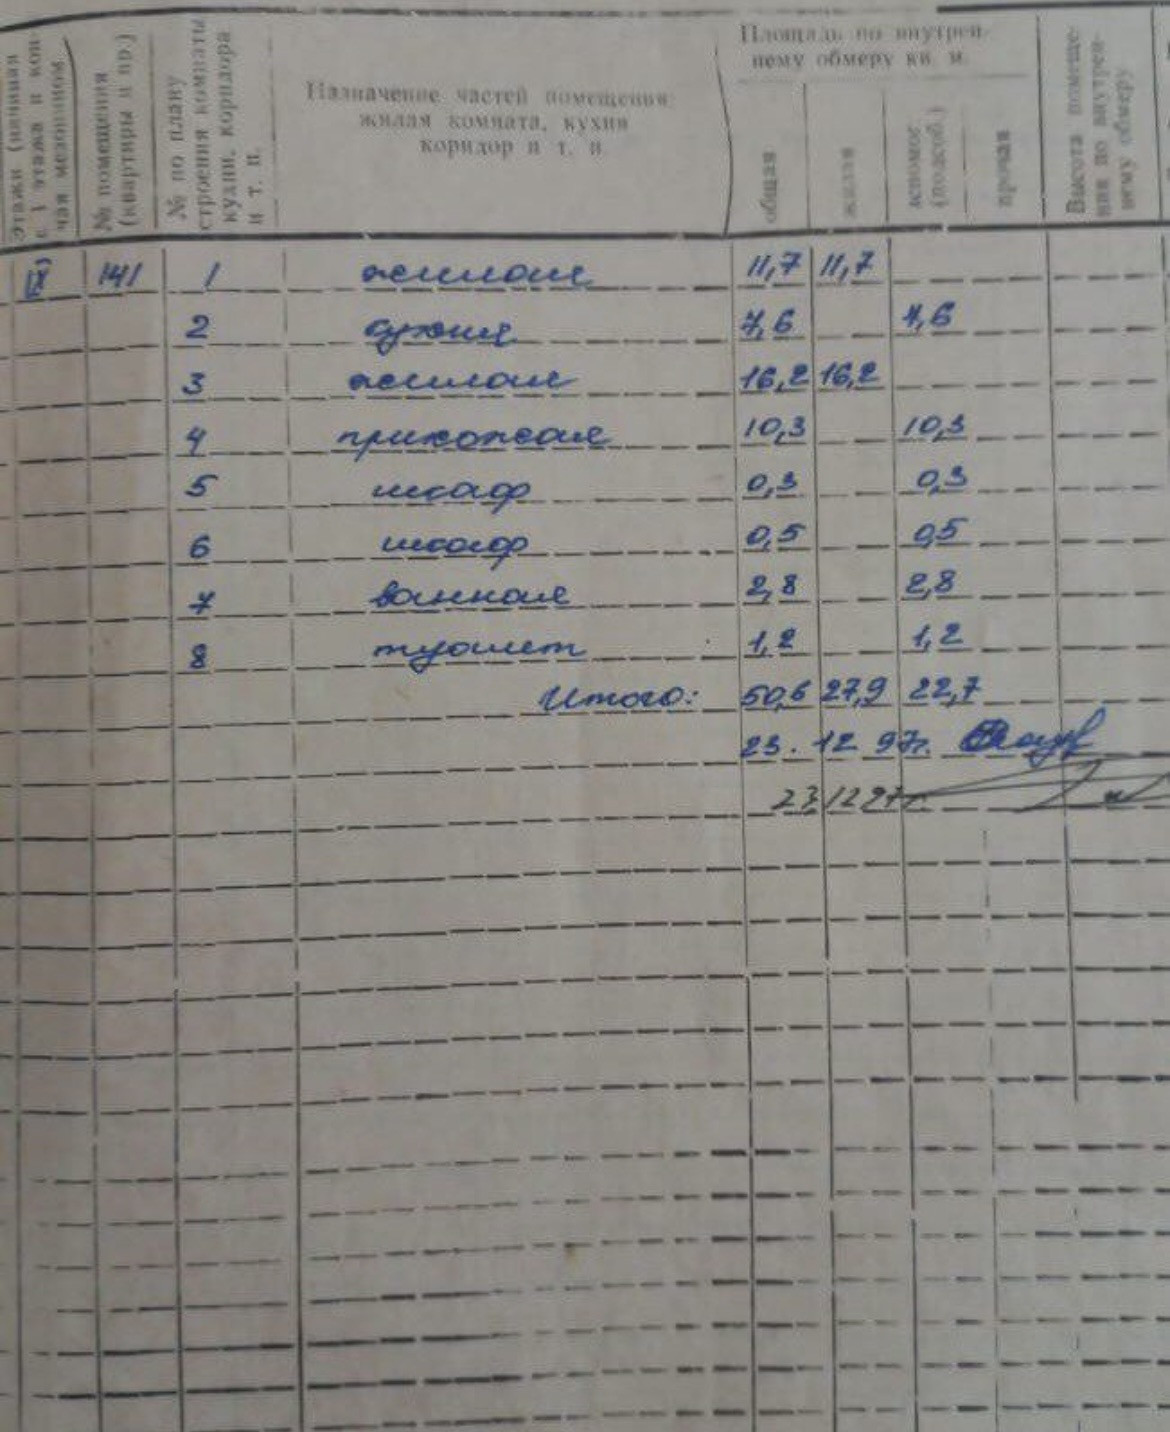 Этажи (начиная с 1 этажа и кончая мезонином
№ помещения (квартиры и пр.)
№ по плану строения комнаты кухни, коридора и т. п.
Назначение частей помещения:
жилая комната, кухня
коридор и т. п.
Площадь по внутрен-
нему обмеру кв. м.
общая
жилая
вспомог. (подсоб.)
прочая
Высота помеще-
ния по внутрен-
нему обмеру
IX 141 1 жилая 11,7 11,7
2 кухня 7,6 7,6
3 жилая 16,2 16,2
4 прихожая 10,3 10,3
5 шкаф 0,3 0,3
6 шкаф 0,5 0,5
7 ванная 2,8 2,8
8 туалет 1,2 1,2
Итого: 50,6 27,9 22,7
23. 12 97г.
23 12 97г.